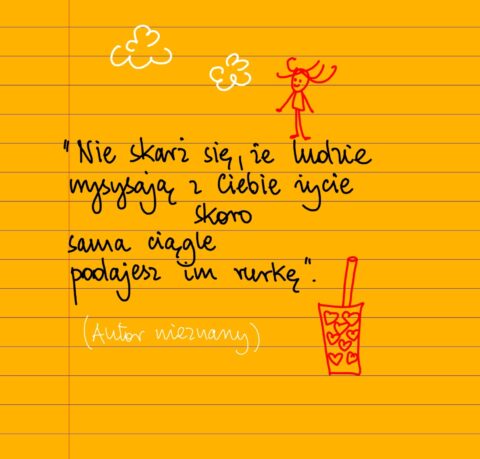 "Nie skarż się, że ludzie
wysysają z Ciebie życie
skoro
sama ciągle
podajesz im rurkę".
(Autor nieznany)